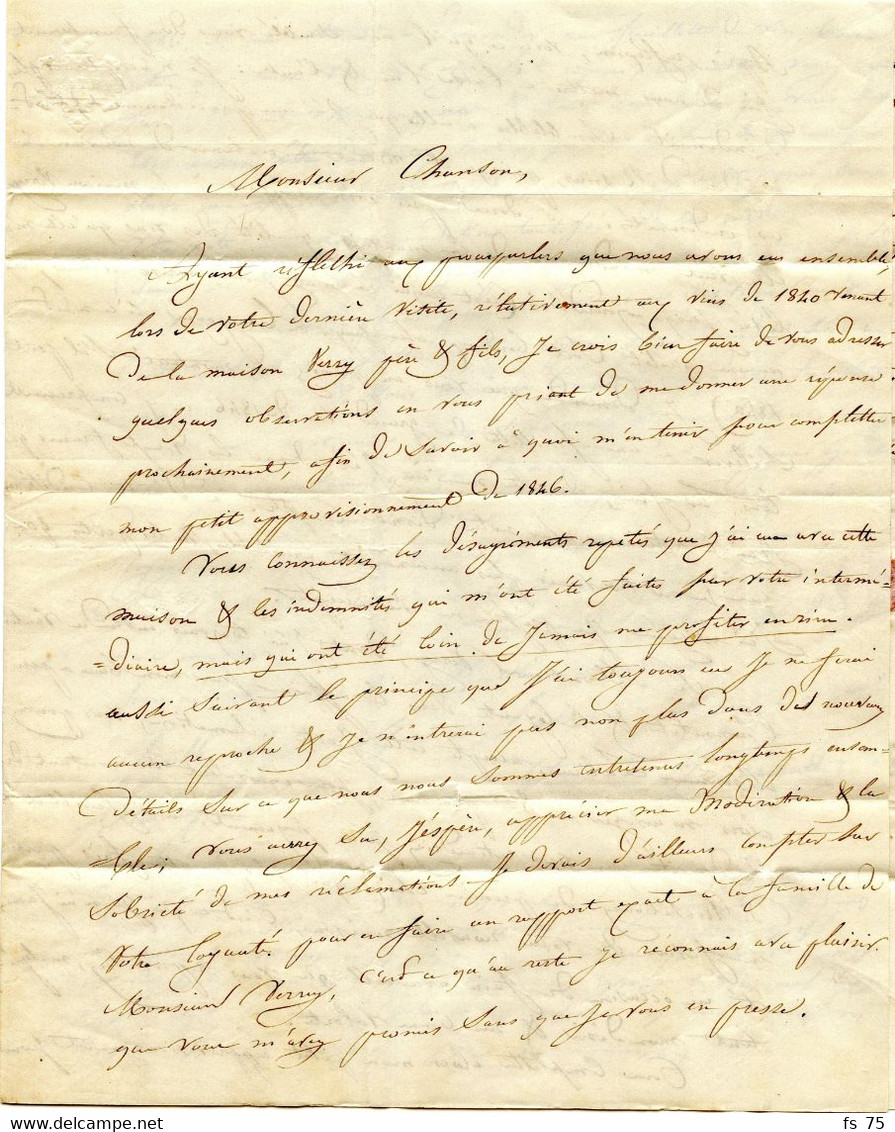 Monsieur Chanson,
Ayant réflethi aux pourparlers que nous avons eus ensemble,
lors de votre dernière visite, rélativement aux vins de 1840 venant
de la maison Verry père & fils, Je crois bien faire de vous adresser
quelques observations en vous priant de me donner une réponse
prochainement, afin de savoir à quoi m'en tenir pour completter
mon petit approvisionnement de 1846.
Vous connaissez les désagréments repetés que j'ai eu avec cette
maison & les indemnités qui m'ont été faites par votre intermé=
=diaire, mais qui ont été loin de Jamais me profiter en rien.
aussi suivant le principe que J'ai toujours eu Je ne ferai
aucun reproche & je n'entrerai pas non plus dans des nouveaux
détails sur ce que nous nous sommes entretenus longtemps ensem=
=ble; vous aurez su, J'éspère, apprécier ma modération & la
sobrieté de mes réclamations. Je devais d'ailleurs compter sur
votre loyauté. pour en faire un rapport exact à la famille de
Monsieur Verry, c'est ce qu'au reste je reconnais avec plaisir.
que vous m'avez promis sans que je vous en presse.
fs 75